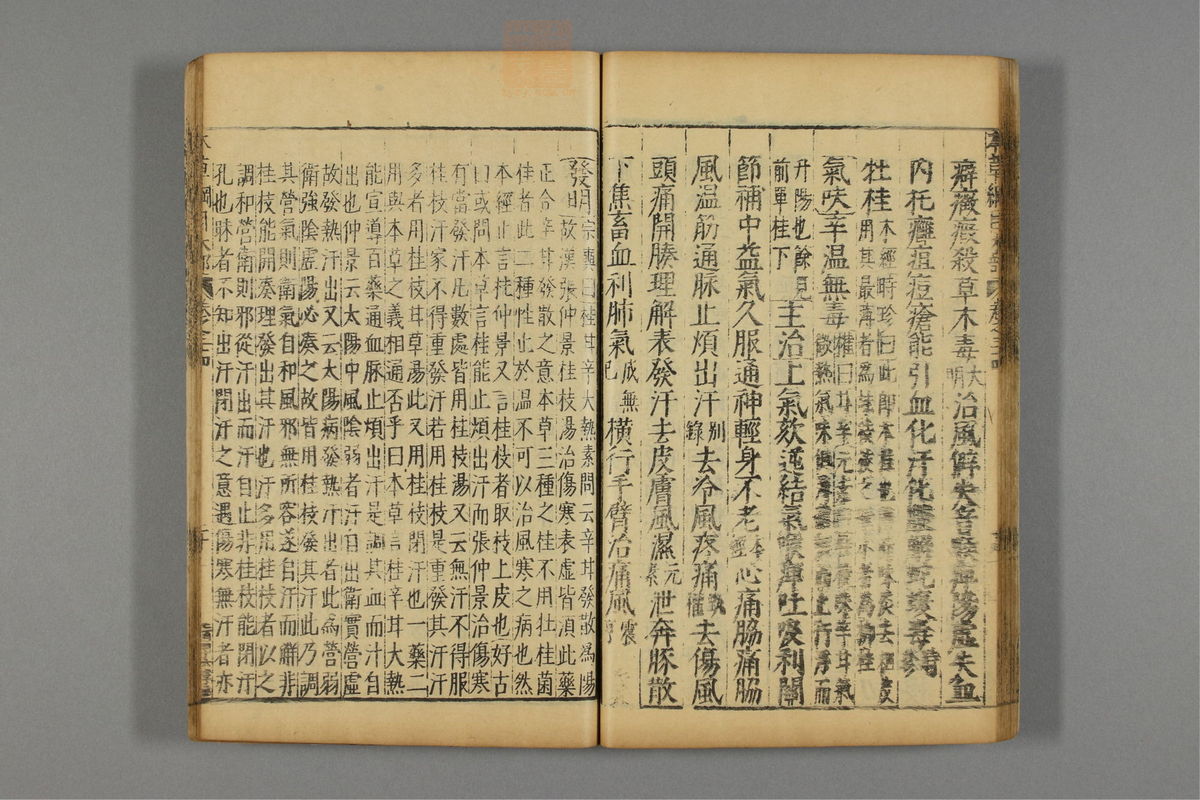 癖癥瘕殺草木毒大明治風僻失音喉痺陽虛失血
內托癰疽痘瘡能引血化汗化膿解蛇蝮毒時珍
牡桂本經時珍曰此即木桂也薄而味淡去粗皮
用其最薄者為桂枝枝之嫩小者為柳桂
氣味辛溫無毒權曰甘辛元素曰桂枝味辛甘氣
微熱氣味俱薄體輕而上行浮而
升陽也餘見
前單桂下主治上氣欬逆結氣喉痺吐吸利關
節補中益氣久服通神輕身不老本經心痛脇痛脇
風溫筋通脉止煩出汗別錄去冷風疼痛甄權去傷風
頭痛開腠理解表發汗去皮膚風濕元素泄奔豚散
下焦畜血利肺氣成無己橫行手臂治痛風震亨
發明宗奭曰桂甘辛大熱素問云辛甘發散為陽
故漢張仲景桂枝湯治傷寒表虛皆湏此藥
正合辛甘發散之意本草三種之桂不用牡桂菌
桂者此二種性止於溫不可以治風寒之病也然
本經止言桂仲景又言桂枝者取枝上皮也好古
曰或問本草言桂能止煩出汗而張仲景治傷寒
有當發汗凡數處皆用桂枝湯又云無汗不得服
桂枝汗家不得重發汗若用桂枝是重發其汗汗
多者用桂枝甘草湯此又用桂枝閉汗也一藥二
用與本草之義相通否乎曰本草言桂辛甘大熱
能宣導百藥通血脈止煩出汗是調其血而汁自
出也仲景云太陽中風陰弱者汗自出衛實營虛
故發熱汗出又云太陽病發熱汗出者此為營弱
衛強陰虛陽必湊之故皆用桂枝發其汗此乃調
其營氣則衛氣自和風邪無所容遂自汗而解非
桂枝能開湊理發出其汗也汗多用桂枝者以之
調和營衛則邪從汗出而汗自止非桂枝能閉汗
孔也昧者不知出汗閉汗之意遇傷寒無汗者亦
本草綱目木部 卷之三四